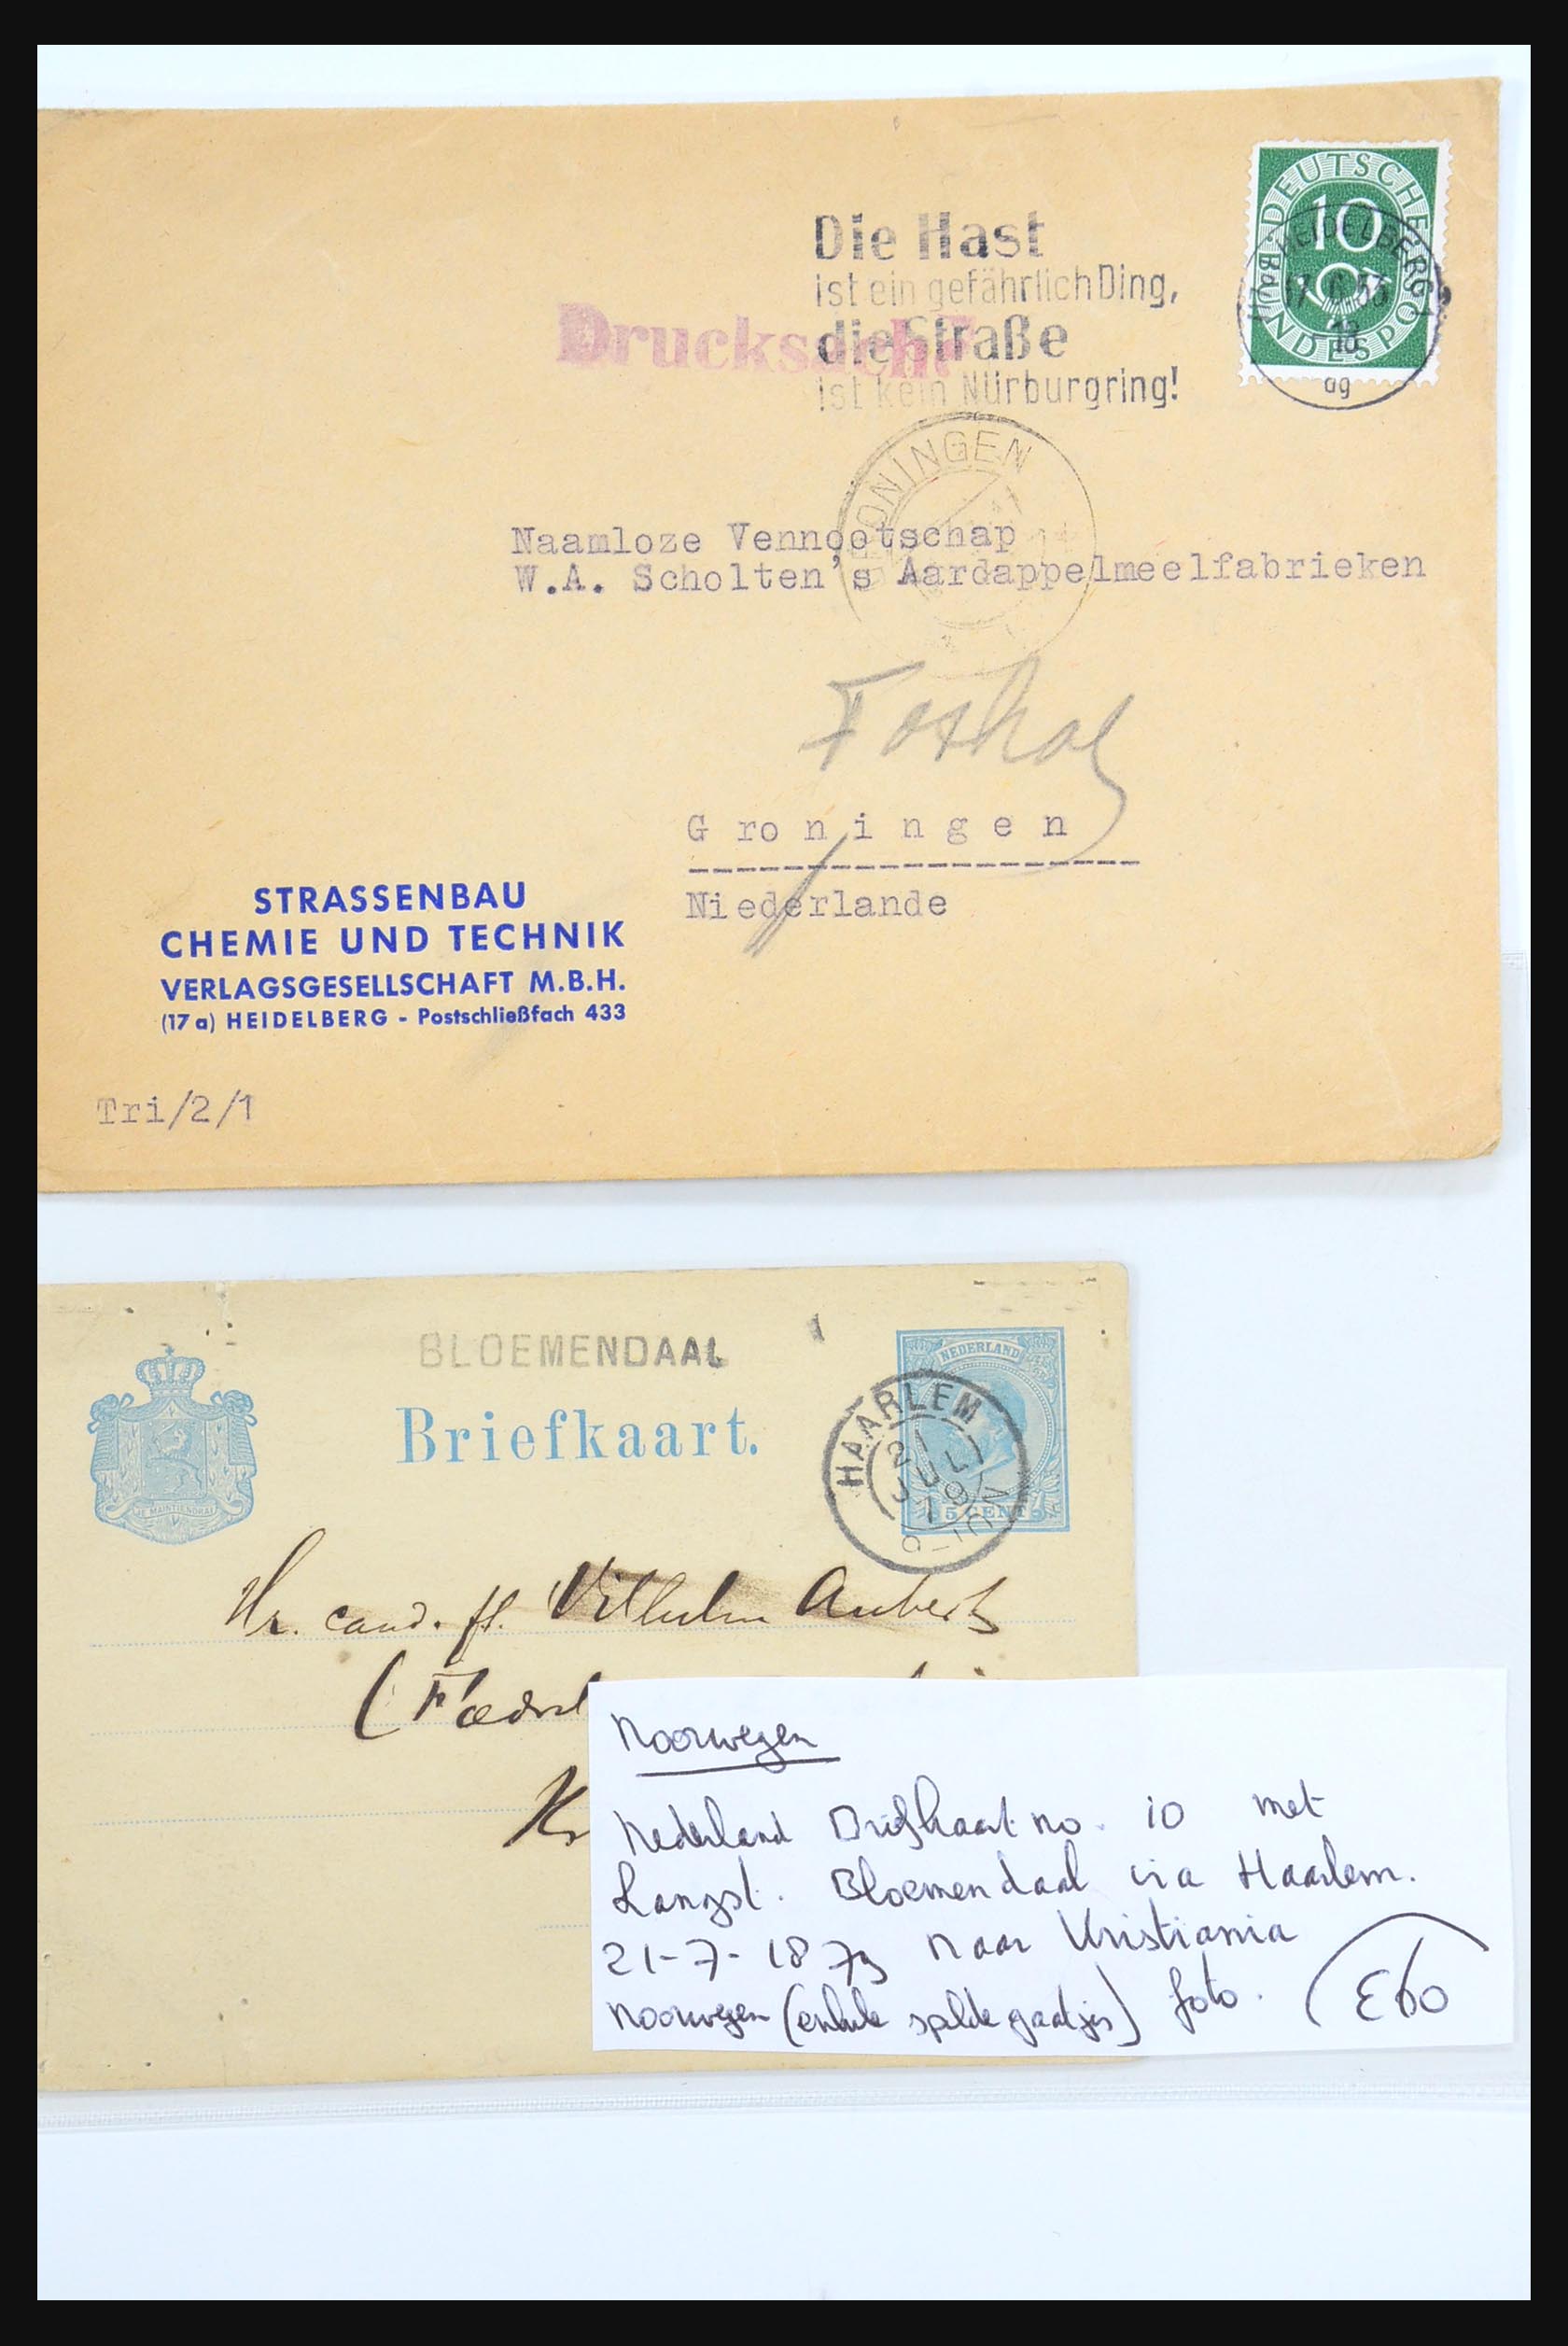 DEUTSCHE BUNDESPOST
10
HEIDELBERG
53
18
ag
Die Hast
ist ein gefährlich Ding,
die Straße
ist kein Nürburgring!
Drucksache
GRONINGEN
Naamloze Vennootschap
W.A. Scholten's Aardappelmeelfabrieken
Foxhol
Groningen
Niederlande
STRASSENBAU
CHEMIE UND TECHNIK
VERLAGSGESELLSCHAFT M.B.H.
(17a) HEIDELBERG - Postschließfach 433
Tri/2/1
BLOEMENDAAL
NEDERLAND
Briefkaart.
HAARLEM
21
JUL
79
5 CENT
JE MAINTIENDRAI
Hr. cand. Vilhelm Aubert
(Fædrel
Kr
Noorwegen
Nederland Briefkaart no. 10 met
Langst. Bloemendaal via Haarlem.
21-7-1879 naar Kristiania
Noorwegen (enkele speldegaatjes) foto. €60